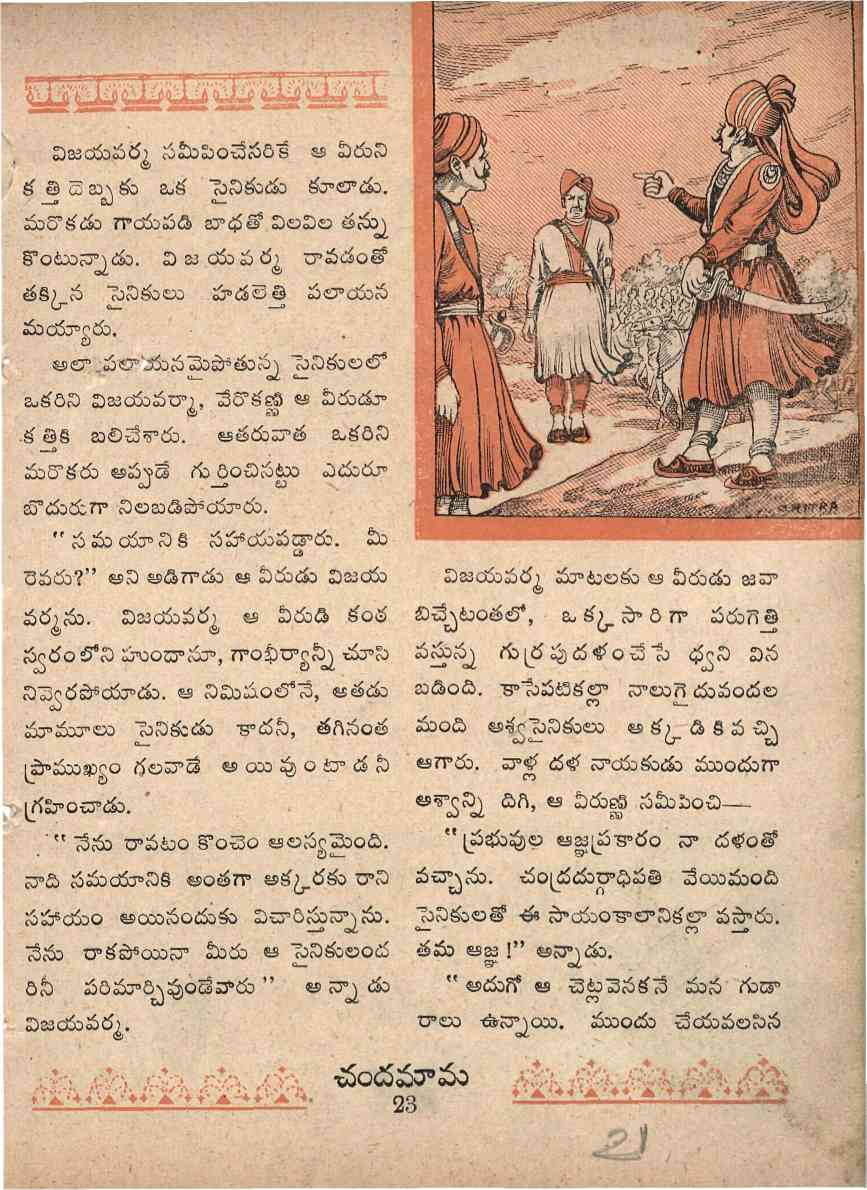 విజయవర్మ సమీపించేసరికే ఆ వీరుని
కత్తిదెబ్బకు ఒక సైనికుడు కూలాడు.
మరొకడు గాయపడి బాధతో విలవిల తన్ను
కొంటున్నాడు. విజయవర్మ రావడంతో
తక్కిన సైనికులు హడలెత్తి పలాయన
మయ్యారు.
అలా పలాయనమైపోతున్న సైనికులలో
ఒకరిని విజయవర్మా, వేరొకణ్ణి ఆ వీరుడూ
కత్తికి బలిచేశారు. ఆతరువాత ఒకరిని
మరొకరు అప్పుడే గుర్తించినట్టు ఎదురూ
బొదురుగా నిలబడిపోయారు.
"సమయానికి సహాయపడ్డారు. మీ
రెవరు?" అని అడిగాడు ఆ వీరుడు విజయ
వర్మను. విజయవర్మ ఆ వీరుడి కంఠ
స్వరంలోని హుందానూ, గాంభీర్యాన్నీ చూసి
నివ్వెరపోయాడు. ఆ నిమిషంలోనే, అతడు
మామూలు సైనికుడు కాదనీ, తగినంత
ప్రాముఖ్యం గలవాడే అయివుంటాడనీ
గ్రహించాడు.
"నేను రావటం కొంచెం ఆలస్యమైంది.
నాది సమయానికి అంతగా అక్కరకు రాని
సహాయం అయినందుకు విచారిస్తున్నాను.
నేను రాకపోయినా మీరు ఆ సైనికులంద
రినీ పరిమార్చివుండేవారు" అన్నాడు
విజయవర్మ.
CHITRA
విజయవర్మ మాటలకు ఆ వీరుడు జవా
బిచ్చేటంతలో, ఒక్కసారిగా పరుగెత్తి
వస్తున్న గుర్రపుదళంచేసే ధ్వని విన
బడింది. కాసేపటికల్లా నాలుగైదువందల
మంది అశ్వసైనికులు అక్కడికివచ్చి
ఆగారు. వాళ్ల దళనాయకుడు ముందుగా
అశ్వాన్ని దిగి, ఆ వీరుణ్ణి సమీపించి—
"ప్రభువుల ఆజ్ఞప్రకారం నా దళంతో
వచ్చాను. చంద్రదుర్గాధిపతి వేయిమంది
సైనికులతో ఈ సాయంకాలానికల్లా వస్తారు.
తమ ఆజ్ఞ!" అన్నాడు.
"అదుగో ఆ చెట్లవెనకనే మన గుడా
రాలు ఉన్నాయి. ముందు చేయవలసిన
చందమామ
23
21